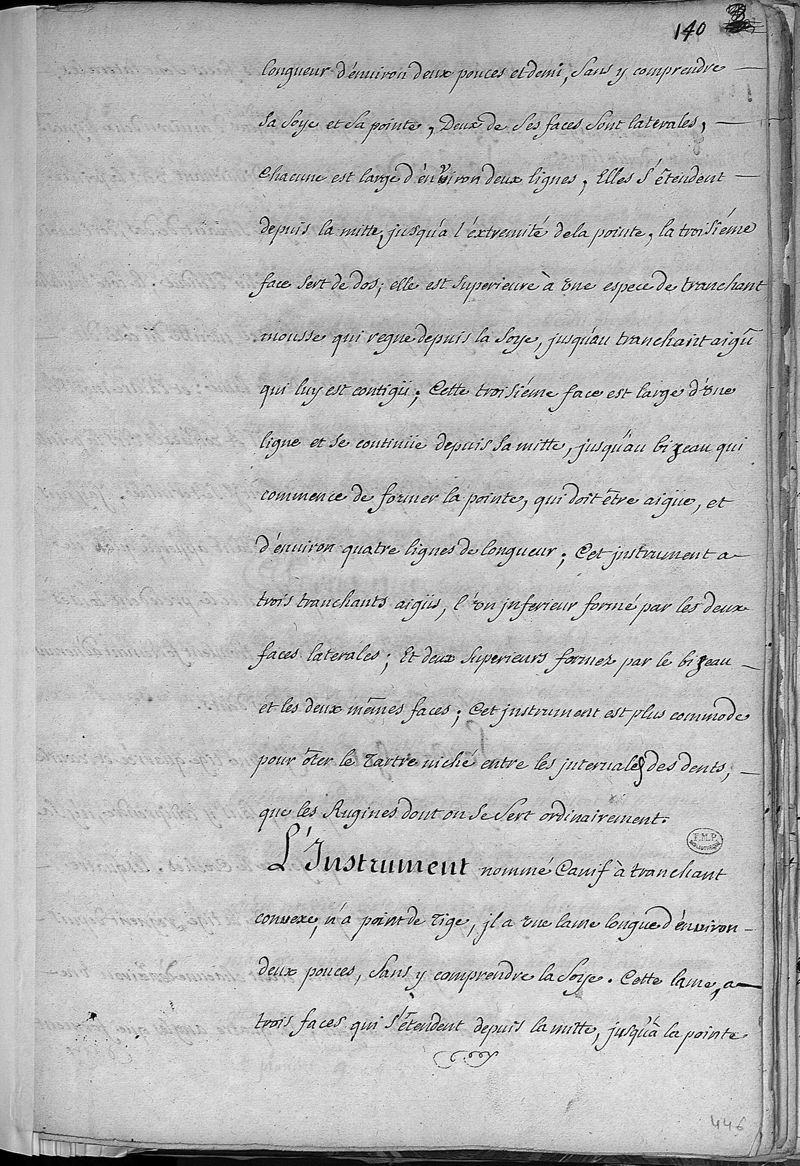 140
longueur d'énviron deux pouces et demi, sans y comprendre
sa soye et sa pointe, Deux de ses faces sont laterales,
Chacune est large d'énviron deux lignes, Elles s'étendent
depuis la mitte, jusqu'a l'éxtremité de la pointe, la troisiéme
face sert de dos; elle est superieure à une espece de tranchant
mousse qui regne depuis la soye, jusqu'au tranchant aigü
qui luy est contigü; Cette troisiéme face est large d'une
ligne et se continüe depuis sa mitte, jusqu'au bizeau qui
commence de former la pointe, qui doit être aigüe, et
d'énviron quatre lignes de longueur; Cet jnstrument a
trois tranchants aigüs, l'un jnferieur formé par les deux
faces laterales; Et deux superieurs formez par le bizeau
et les deux mêmes faces; Cet jnstrument est plus commode
pour ôter le Tartre niché entre les jntervales des dents,
que les Rugines dont on se sert ordinairement.
L'Instrument nommé Canif à tranchant
convexe, n'a point de Tige, jl a une lame longue d'énviron
deux pouces, sans y comprendre la soye. Cette lame, a
trois faces qui s'étendent depuis la mitte, jusqu'à la pointe
F.M.P.
446